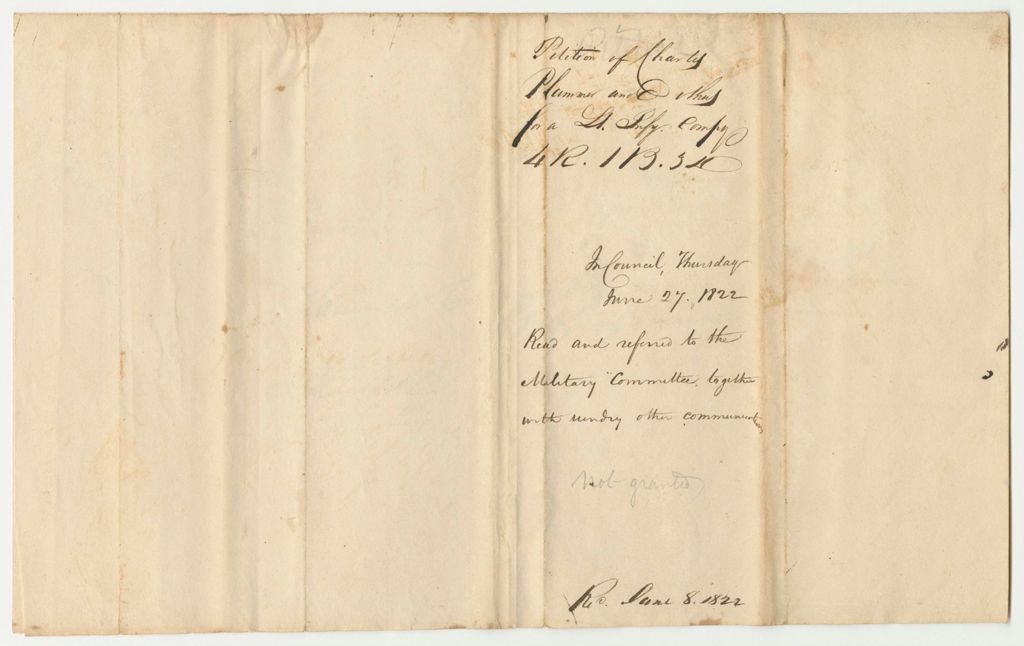 Petition of Charles
Plummer and Others
for a Lt. Infy. Compy
4 R. 1 B. 3 D
In Council, Thursday
June 27. 1822
Read and referred to the
Military Committee, together
with sundry other communications
Not granted
Rec. June 8. 1822